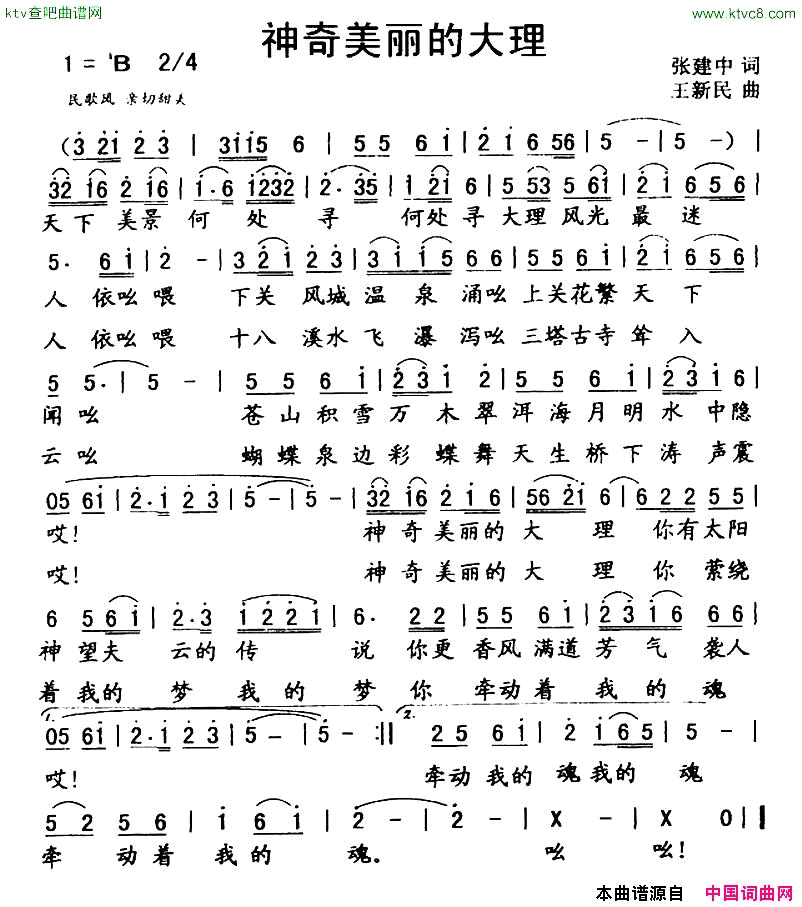 ktv查吧曲谱网
www.ktvc8.com
神奇美丽的大理
1=ᵇB 2/4
张建中 词
王新民 曲
民歌风 亲切甜美
(3 21 2 3 | 3115 6 | 5 5 6 1 | 2 1 6 56 | 5 - | 5 - ) |
32 16 2 16 | 1· 6 1232 | 2· 35 | 1 21 6 1 | 5 53 5 61 | 2 1 6 5 6 |
天下 美景 何 处 寻 何处 寻 大理 风光 最 迷
5· 6 1 | 2 - | 3 2 1 2 3 | 3 1 1 5 6 | 5 5 6 5 1 | 2 1 6 5 6 |
人 依吆 喂 下关 风城 温 泉 涌吆 上关花繁 天 下
人 依吆 喂 十八 溪水 飞 瀑 泻吆 三塔古寺 耸 入
5 5· | 5 - | 5 5 6 1 | 2 3 1 2 | 5 5 6 1 | 2 3 1 6 |
闻 吆 苍山积雪 万 木 翠 洱海月明 水 中隐
云 吆 蝴蝶泉边 彩 蝶 舞 天生桥下 涛 声震
05 61 | 2· 1 2 3 | 5 - | 5 - | 32 16 | 2 1 6 | 56 21 6 | 6 2 2 5 5 |
哎! 神奇美丽的 大 理 你有太阳
哎! 神奇美丽的 大 理 你 萦绕
6 5 6 1 | 2· 3 | 1 2 2 1 | 6· 2 2 | 5 5 6 1 | 2 3 1 6 6 6 |
神 望夫 云的 传 说 你更 香风 满道 芳 气 袭人
着 我的 梦 我 的 梦 你 牵动 着 我 的 魂
1. 2.
05 61 | 2· 1 2 3 | 5 - | 5 - :‖ 2 5 6 1 | 2 2 | 2 1 6 5 | 5 - |
哎! 牵动 我的 魂 我的 魂
5 2 5 6 | 1 6 1 | 2 - | 2 - | X - | X 0 ‖
牵 动着 我 的 魂。 吆 吆!
本曲谱源自 中国词曲网